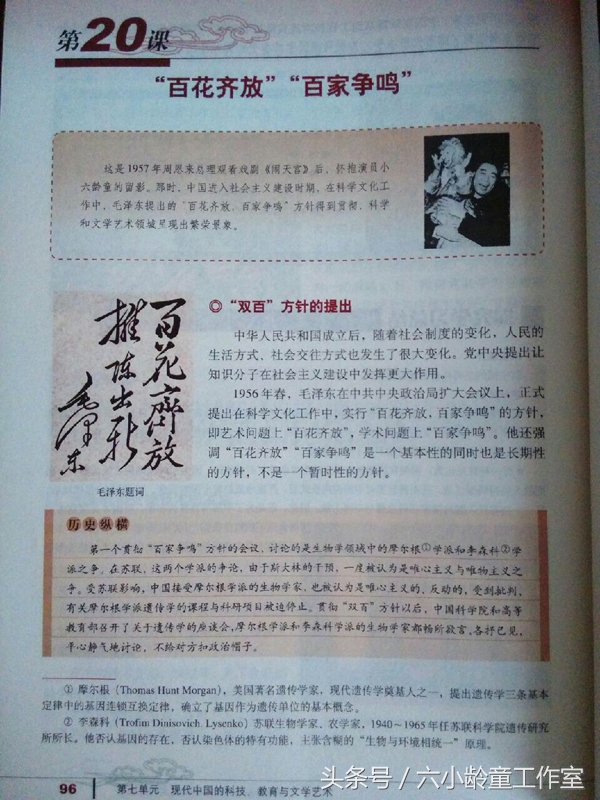 第20课
“百花齐放”“百家争鸣”
这是1957年周恩来总理观看戏剧《闹天宫》后，怀抱演员小
六龄童的留影。那时，中国进入社会主义建设时期，在科学文化工
作中，毛泽东提出的“百花齐放，百家争鸣”方针得到贯彻，科学
和文学艺术领域呈现出繁荣景象。
百花齊放
推陈出新
毛泽东
毛泽东题词
◎“双百”方针的提出
中华人民共和国成立后，随着社会制度的变化，人民的
生活方式、社会交往方式也发生了很大变化。党中央提出让
知识分子在社会主义建设中发挥更大作用。
1956年春，毛泽东在中共中央政治局扩大会议上，正式
提出在科学文化工作中，实行“百花齐放，百家争鸣”的方针，
即艺术问题上“百花齐放”，学术问题上“百家争鸣”。他还强
调“百花齐放”“百家争鸣”是一个基本性的同时也是长期性
的方针，不是一个暂时性的方针。
历史纵横
第一个贯彻“百家争鸣”方针的会议，讨论的是生物学领域中的摩尔根①学派和李森科②学
派之争。在苏联，这两个学派的争论，由于斯大林的干预，一度被认为是唯心主义与唯物主义之
争。受苏联影响，中国接受摩尔根学派的生物学家，也被认为是唯心主义的、反动的，受到批判，
有关摩尔根学派遗传学的课程与科研项目被迫停止。贯彻“双百”方针以后，中国科学院和高等
教育部召开了关于遗传学的座谈会，摩尔根学派和李森科学派的生物学家都畅所欲言，各抒己见，
平心静气地讨论，不给对方扣政治帽子。
① 摩尔根（Thomas Hunt Morgan），美国著名遗传学家，现代遗传学奠基人之一，提出遗传学三条基本
定律中的基因连锁互换定律，确立了基因作为遗传单位的基本概念。
② 李森科（Trofim Dinisovich. Lysenko）苏联生物学家、农学家，1940～1965年任苏联科学院遗传研究
所所长。他否认基因的存在，否认染色体的特有功能，主张含糊的“生物与环境相统一”原理。
96 第七单元 现代中国的科技、教育与文学艺术
头条号／六小龄童工作室